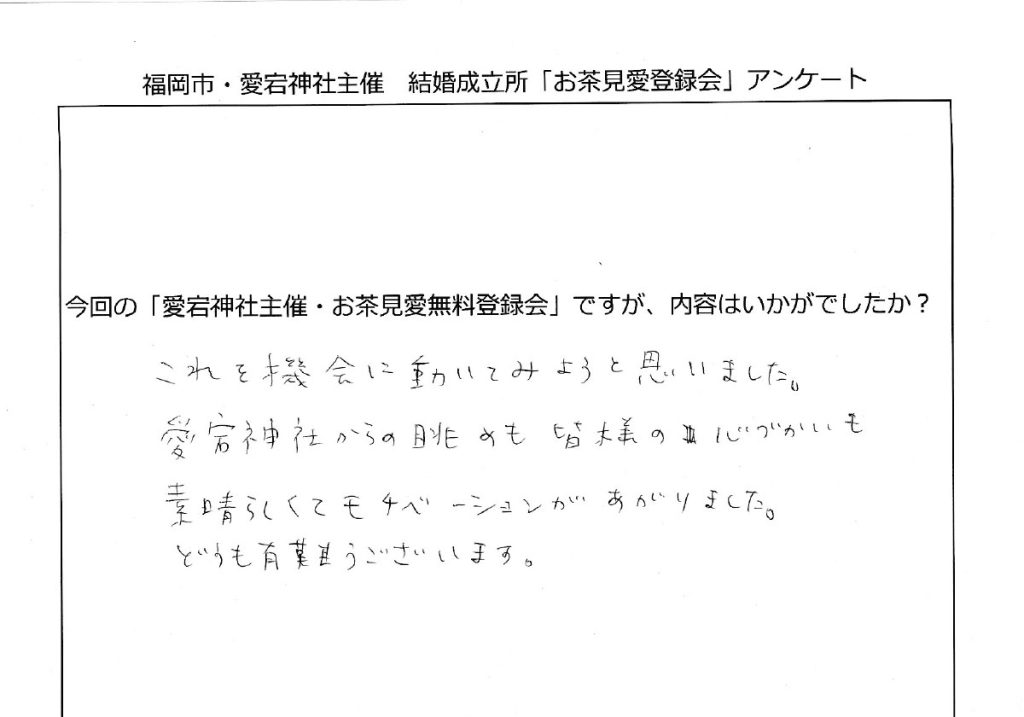 福岡市・愛宕神社主催 結婚成立所「お茶見愛登録会」アンケート
今回の「愛宕神社主催・お茶見愛無料登録会」ですが、内容はいかがでしたか？
これを機会に動いてみようと思いいました。
愛宕神社からの眺めも皆様の心づかいも
素晴らしくてモチベーションがあがりました。
どうも有難うございます。